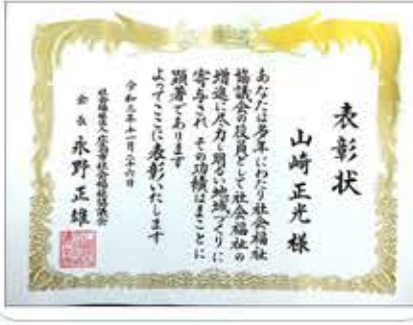 表彰状
山崎正光様
あなたは多年にわたり社会福祉
協議会の役員として社会福祉の
増進に尽力し明るい地域づくりに
寄与され その功績はまことに
顕著であります
よってここに表彰いたします
令和二年十一月二十六日
社会福祉法人広島市社会福祉協議会
会長 永野正雄